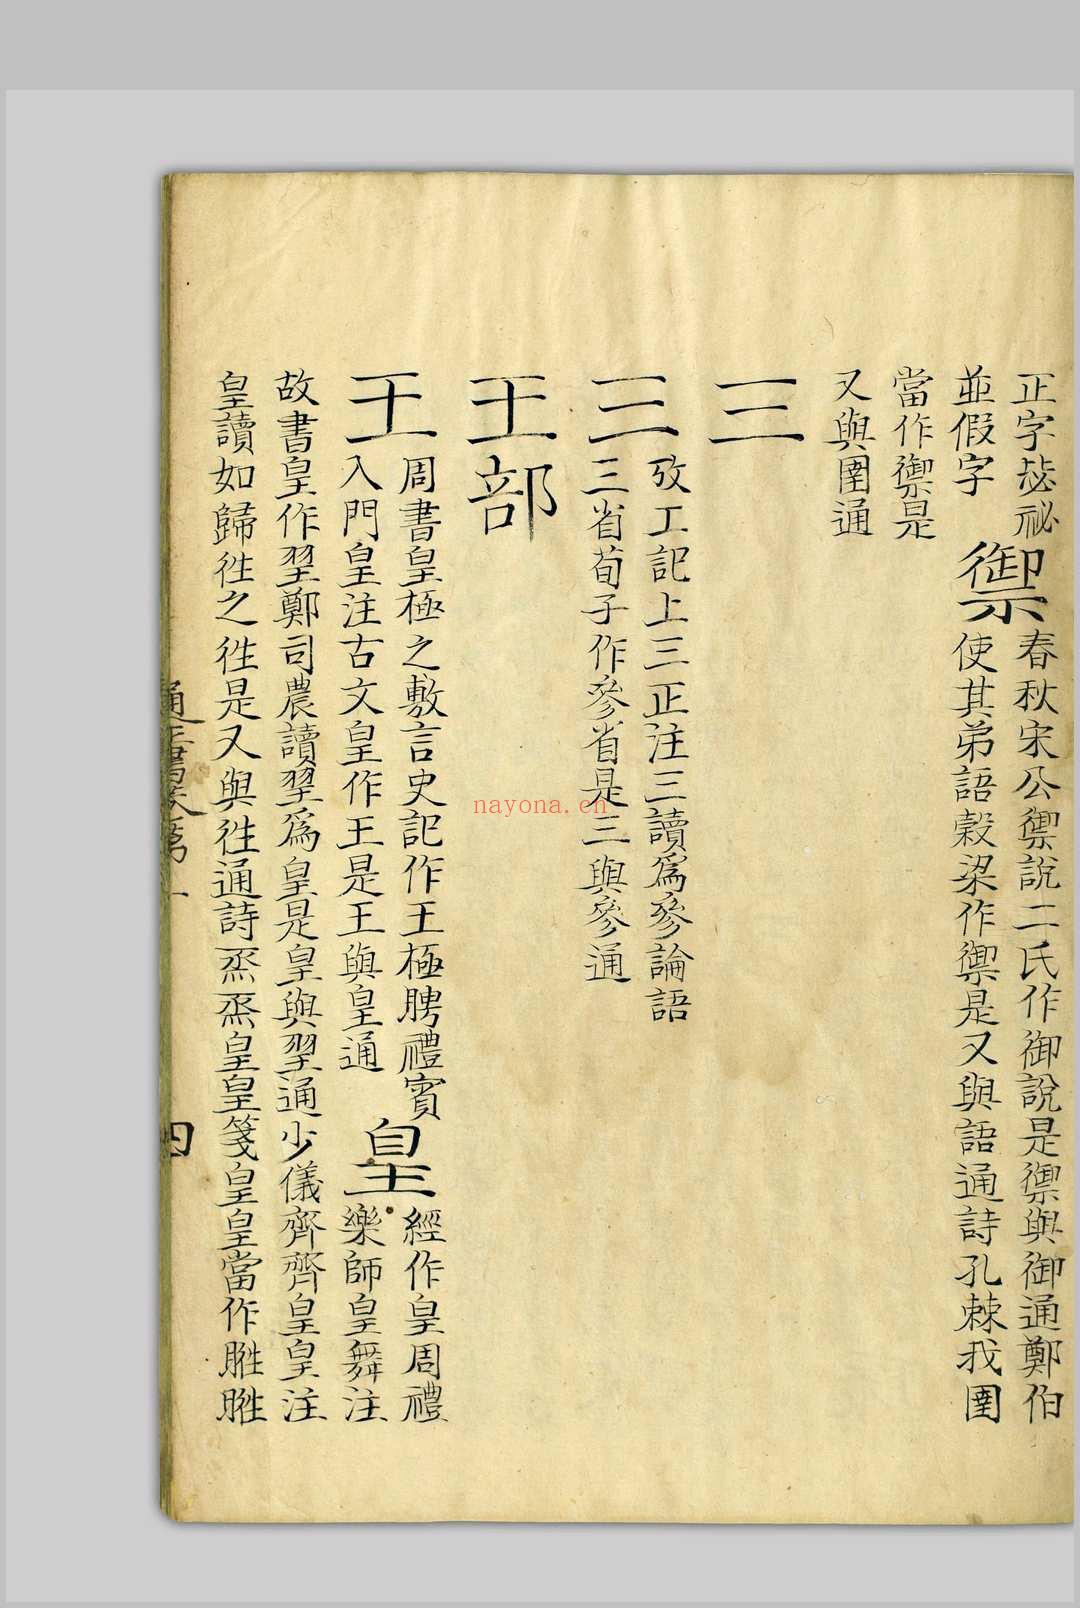 正字毖祕
並假字
禦
春秋宋公禦說二氏作御說是禦與御通鄭伯
使其弟語穀梁作禦是又與語通詩孔棘我圉
當作禦是
又與圉通
三
三
攷工記上三正注三讀爲參論語
三省荀子作參省是三與參通
王部
王
周書皇極之敷言史記作王極聘禮賓
入門皇注古文皇作王是王與皇通
皇
經作皇周禮
樂師皇舞注
故書皇作䍿鄭司農讀䍿爲皇是皇與䍿通少儀齊齊皇皇注
皇讀如歸徃之徃是又與徃通詩烝烝皇皇箋皇皇當作暀暀
四
nayona.cn